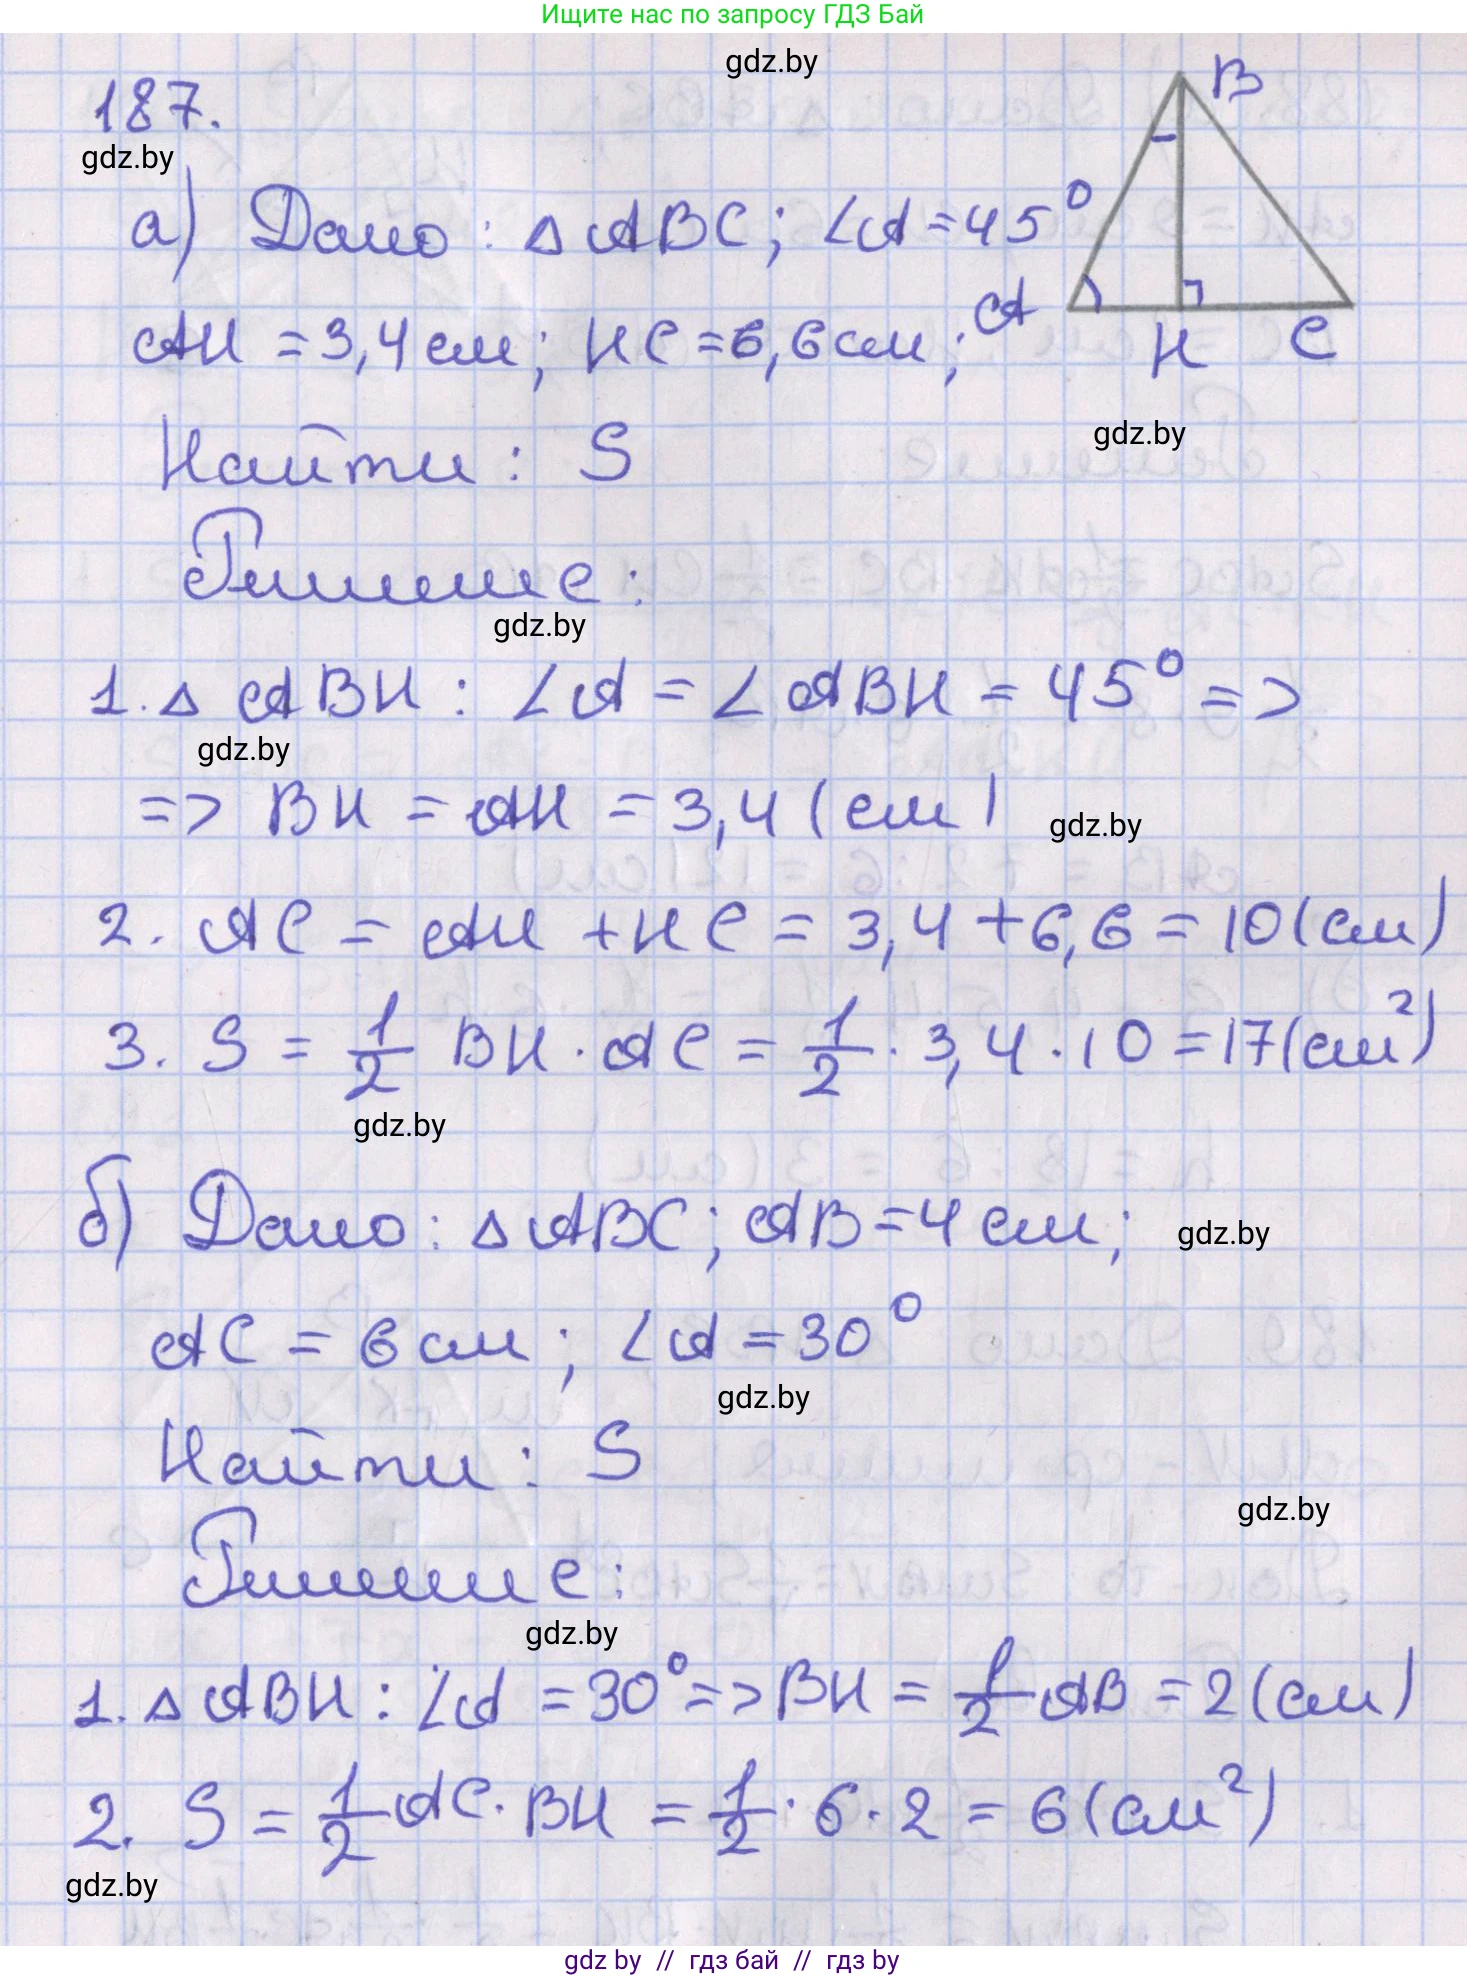 Ищите нас по запросу ГДЗ Бай
gdz.by
187.
gdz.by
B
а) Дано: △ABC; ∠A = 45°
AH = 3,4 см; HC = 6,6 см;
A
H
C
gdz.by
Найти: S
Решение:
gdz.by
1. △ABH: ∠A = ∠ABH = 45° =>
gdz.by
=> BH = AH = 3,4 (см)
gdz.by
2. AC = AH + HC = 3,4 + 6,6 = 10 (см)
3. S = 1/2 BH · AC = 1/2 · 3,4 · 10 = 17 (см²)
gdz.by
б) Дано: △ABC; AB = 4 см;
gdz.by
AC = 6 см; ∠A = 30°
gdz.by
Найти: S
gdz.by
Решение:
gdz.by
1. △ABH: ∠A = 30° => BH = 1/2 AB = 2 (см)
2. S = 1/2 AC · BH = 1/2 · 6 · 2 = 6 (см²)
gdz.by
gdz by // гдз бай // гдз by